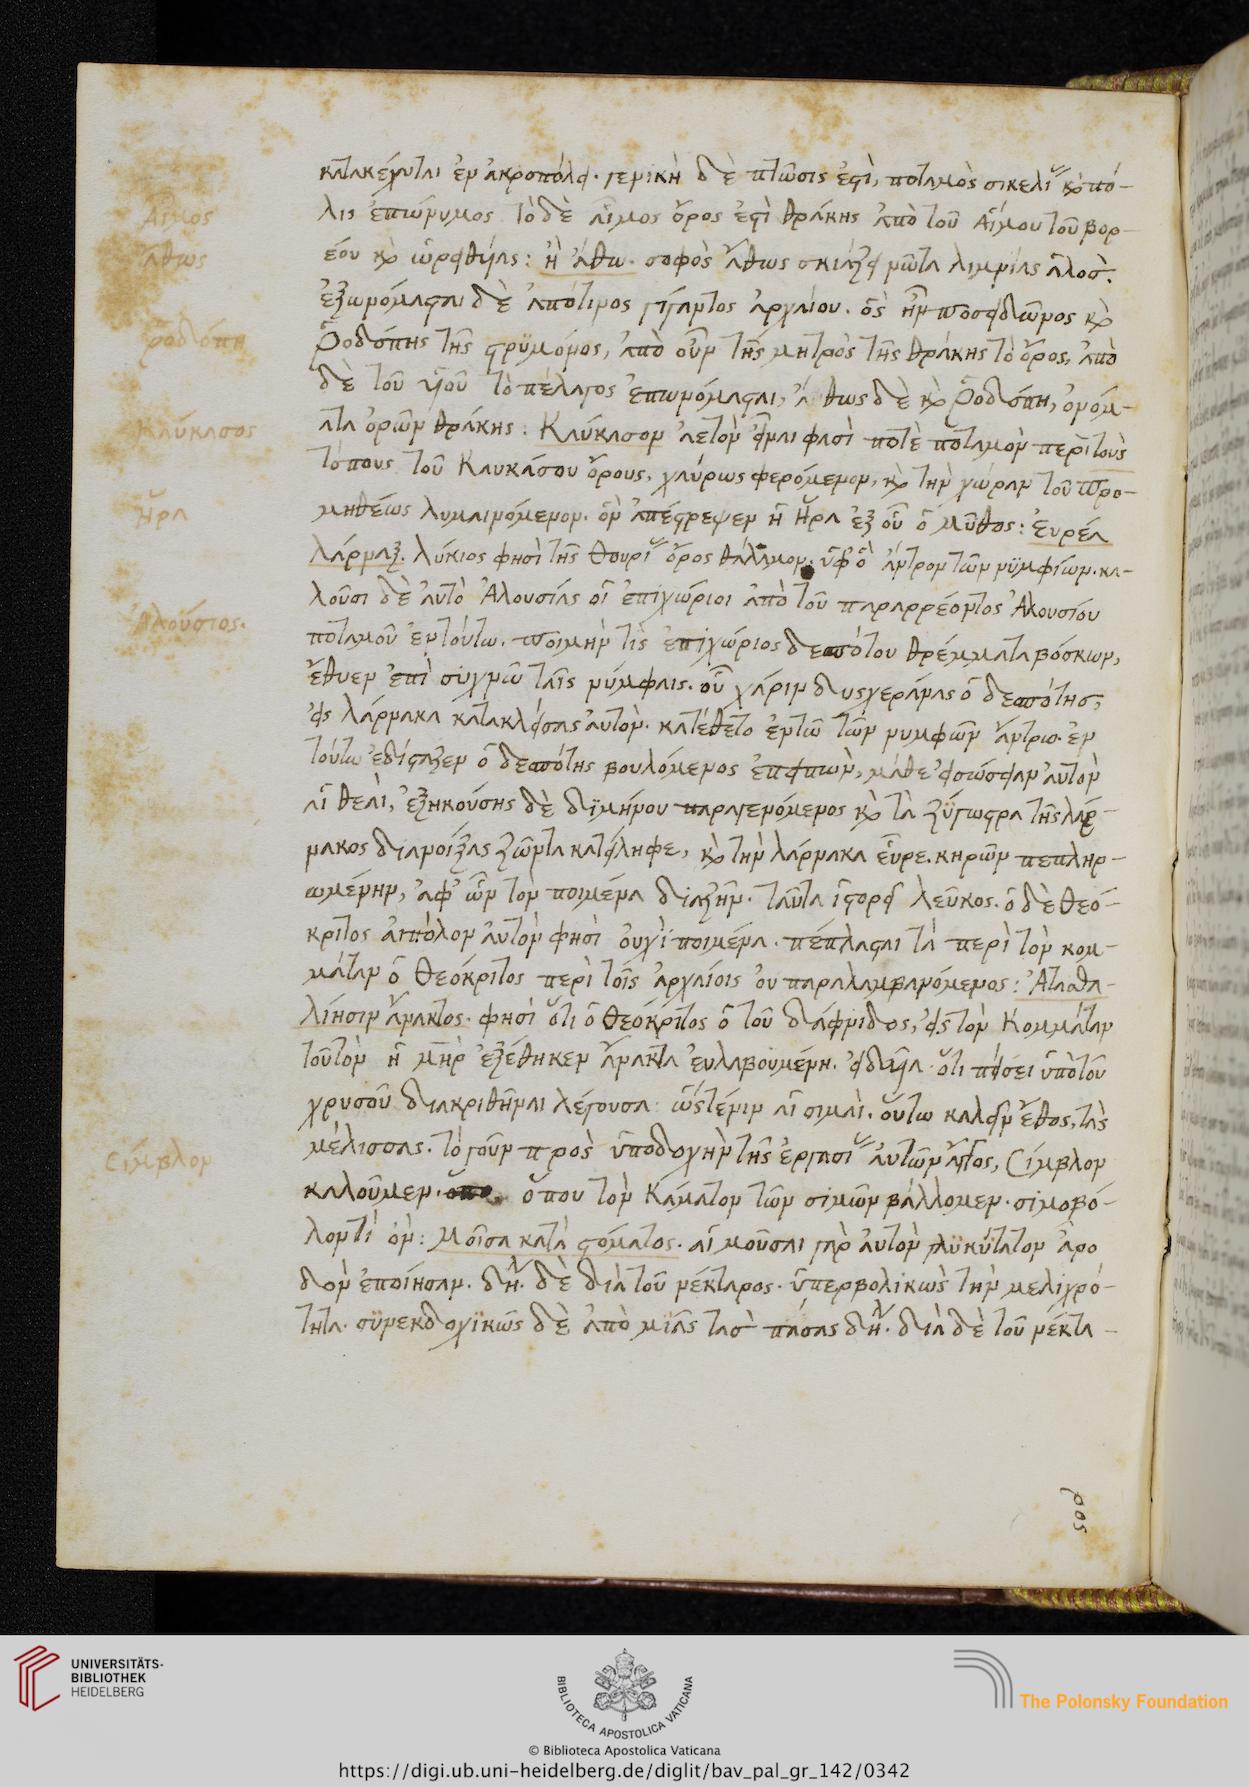 κατακέχυται ἐν ἀκροπόλει. γενικὴ δὲ πτῶσις ἐστὶ, ποταμὸς σικελίας καὶ πό-
λις ἐπώνυμος τὸ δὲ αἷμος ὄρος ἐστὶ θράκης ἀπὸ τοῦ Αἵμου τοῦ βορ-
έου καὶ ὠρειθυίας: ἢ ἄθω. σοφὸς ἄθως σκιάζει νῶτα λιμνίας ἁλός.
ἐξωνόμασται δὲ ἀπό τινος γίγαντος ἀρχαίου. ὃς ἦν ποσειδῶνος καὶ
Ῥοδόπης τῆς στρυμόνος, ἀπὸ οὖν τῆς μητρὸς τῆς θράκης τὸ ὄρος, ἀπὸ
δὲ τοῦ υἱοῦ τὸ πέλαγος ἐπωνόμασται, ἄθως δὲ καὶ Ῥοδόπη, ὀνόμ-
ατα ὀρῶν θράκης: Καύκασον ἀετὸν εἶναι φασὶ ποτὲ ποταμὸν περὶ τοὺς
τόπους τοῦ Καυκάσου ὄρους, χαύνως φερόμενον, καὶ τὴν χώραν τοῦ προ-
μηθέως λυμαινόμενον. ὃν ἀπέστρεψεν ἡ Ἥρα ἐξ οὗ ὁ μῦθος: Εὐρέα
λάρναξ. λύκιος φησὶ τῆς θουρίας ὄρος θάλαμον. ὑφ' ὃ ἄντρον τῶν νυμφίων. κα-
λοῦσι δὲ αὐτὸ Ἀλουσίας οἱ ἐπιχώριοι ἀπὸ τοῦ παραρρέοντος Ἀλουσίου
ποταμοῦ ἐν τούτω. ποιμὴν τὶς ἐπιχώριος δεσπότου θρέμματα βόσκων,
ἔθυεν ἐπὶ συχνῶ ταῖς νύμφαις. οὗ χάριν δυσχεράνας ὁ δεσπότης,
εἰς λάρνακα κατακλείσας αὐτὸν. κατέθετο ἐν τῶ τῶν νυμφῶν ἄντρω. ἐν
τούτω ἐδίσταζεν ὁ δεσπότης βουλόμενος ἐπειπὼν, μάθε εἰ σώσειαν αὐτὸν
αἱ θεαὶ, ἐξηκούσης δὲ διμήνου παραγενόμενος καὶ τὰ ζύγωστρα τῆς λάρ-
νακος διανοίξας ζῶντα κατείληφε, καὶ τὴν λάρνακα εὗρε. κηρῶν πεπληρ-
ωμένην, ἀφ' ὧν τον ποιμένα διαζῆν. ταῦτα ἱστορεῖ λεῦκος. ὁ δὲ θεό-
κριτος αἰπόλον αὐτὸν φησὶ οὐχὶ ποιμένα. πέπλασται τὰ περὶ τὸν κομ-
μάταν ὁ Θεόκριτος περὶ τοῖς ἀρχαίοις οὐ παραλαμβανόμενος: Ἀτασθα-
λίησιν ἄνακτος. φησὶ ὅτι ὁ θεόκριτος ὁ τοῦ δάφνιδος, εἰς τὸν Κομμάταν
τοῦτον ἡ μὴρ ἐξέθηκεν ἄνακτα εὐλαβουμένη. εἰδυῖα ὅτι πείσει ὑπὸ τοῦ
χρυσοῦ διακριθῆναι λέγουσα: ὥς τέ μιν αἱ σιμαὶ. οὕτω καλεῖν ἔθος, τὰς
μέλισσας. τὸ γοῦν πρὸς ὑποδοχὴν τῆς ἐργασίας αὐτῶν ἄγγος, Σίμβλον
καλοῦμεν. ὅπου τὸν Κάματον τῶν σιμῶν βάλλομεν. σιμοβό-
λοντί ὂν: Μοῖσα κατὰ στόματος. αἱ μοῦσαι γὰρ αὐτὸν γλυκύτατον ἀοι
δὸν ἐποίησαν. δηλ δὲ διὰ τοῦ νέκταρος. ὑπερβολικῶς τὴν μελιχρό-
τητα. συνεκδοχικῶς δὲ ἀπὸ μιᾶς τὰς πάσας δηλ. διὰ δὲ τοῦ νέκτα-
ρος
Αἷμος
Ἄθως
Ῥοδόπη
Καύκασος
Ἥρα
Ἀλούσιος.
Σίμβλον
UNIVERSITÄTS-
BIBLIOTHEK
HEIDELBERG
BIBLIOTECA APOSTOLICA VATICANA
The Polonsky Foundation
© Biblioteca Apostolica Vaticana
https://digi.ub.uni-heidelberg.de/diglit/bav_pal_gr_142/0342